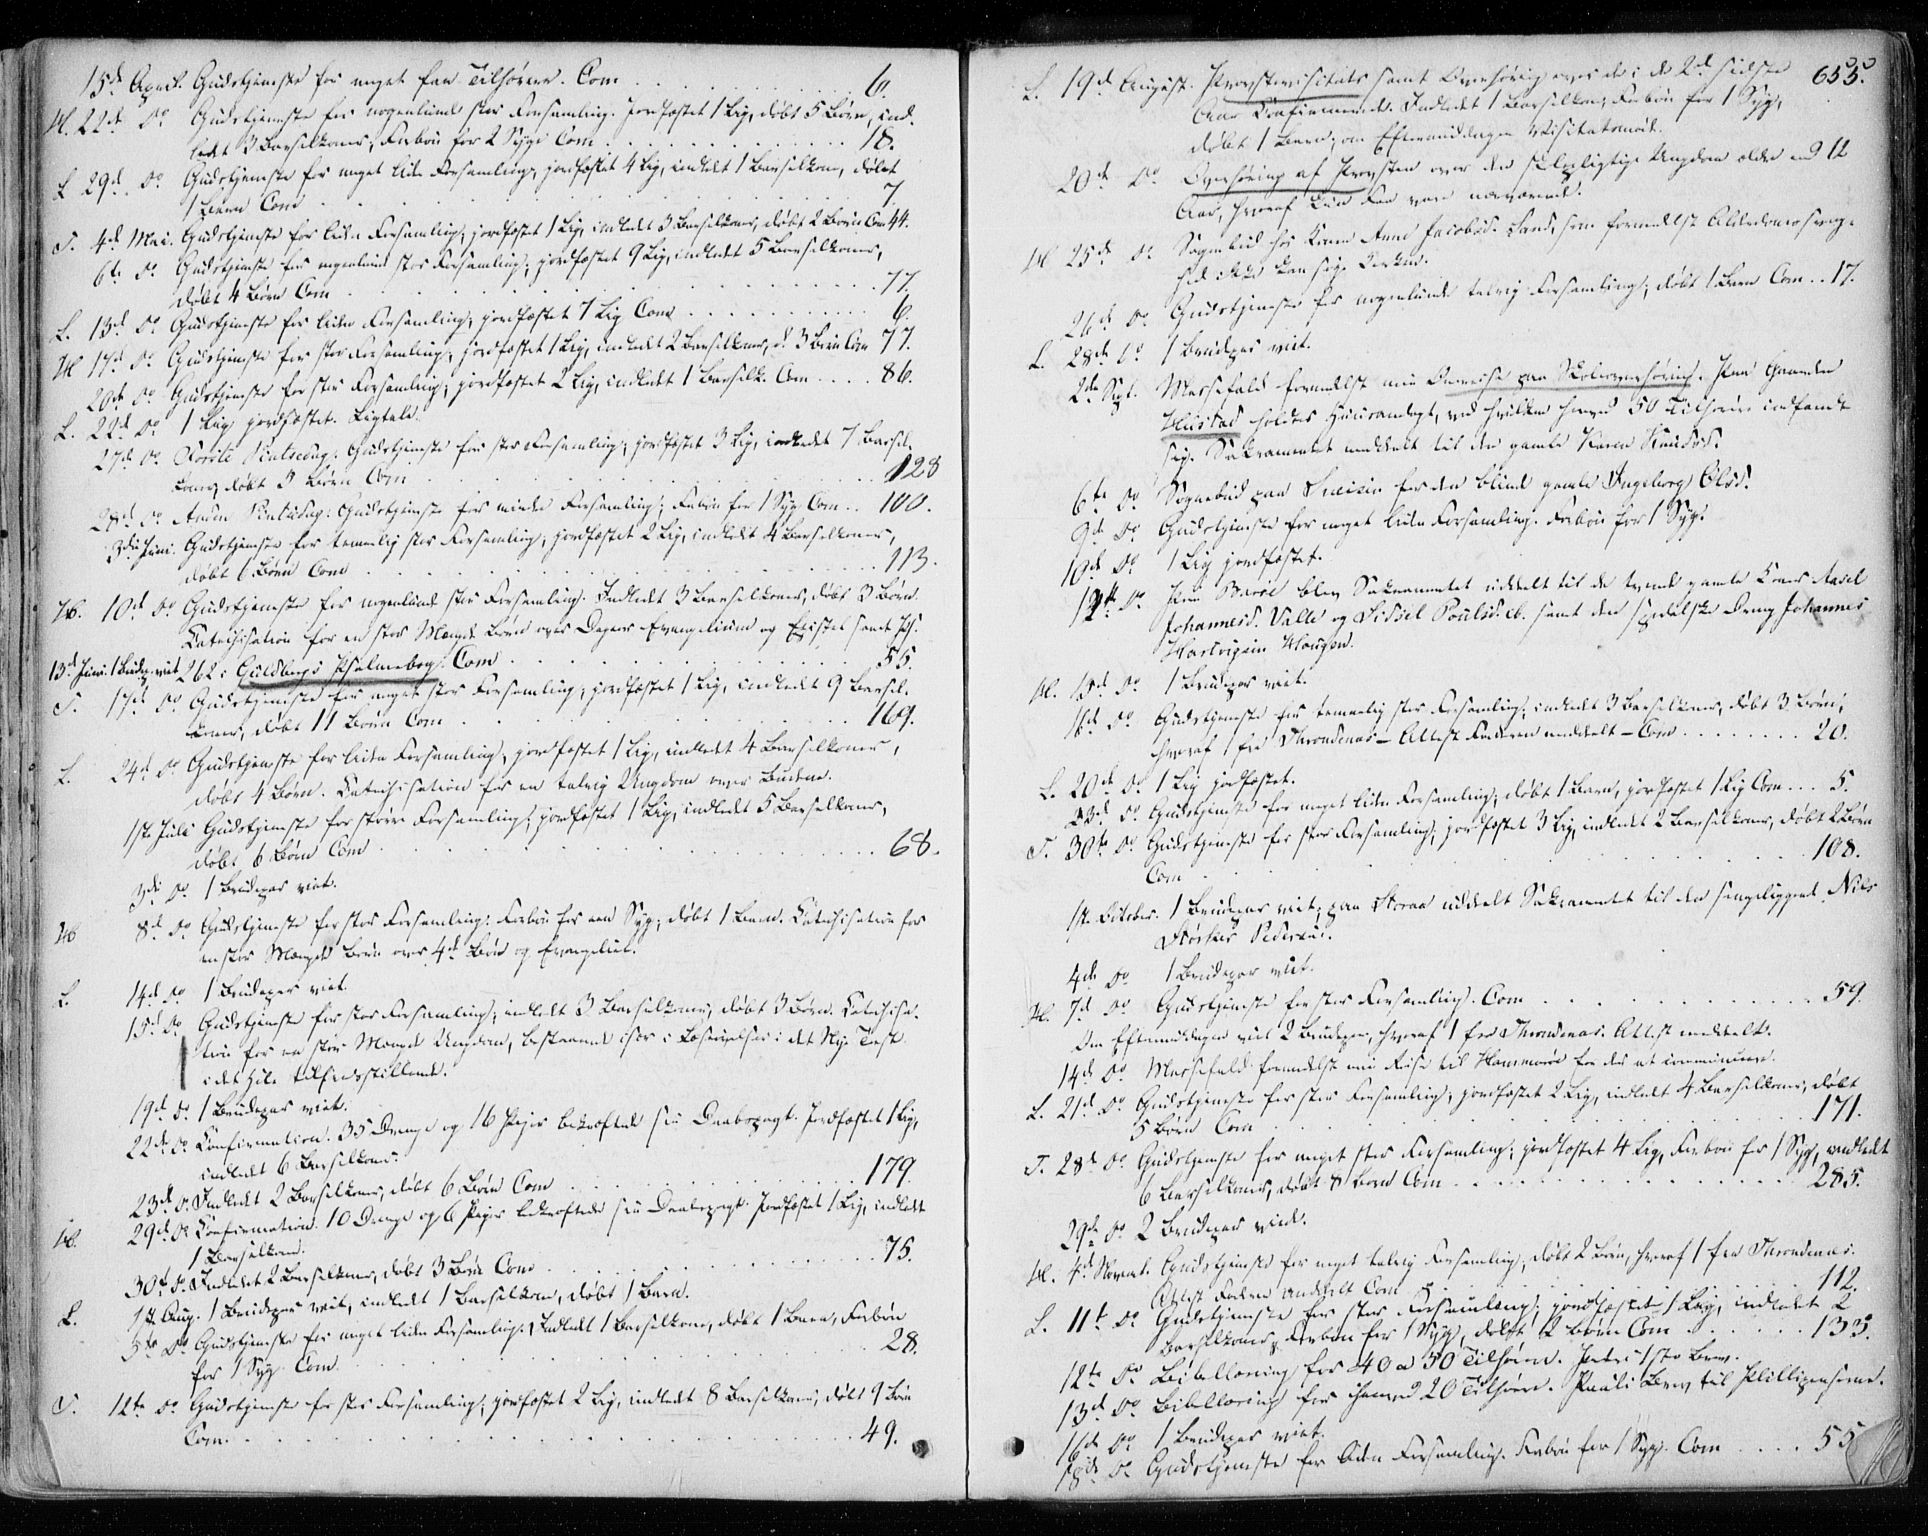 15de April. Gudstjeneste for meget faa Tilhørere. Com . . . 6.
H. 22de do Gudstjeneste for nogenlunde stor Forsamling. Jordfæstet 1 Lig, døbt 5 Børn, ind-
ledet 3 Barselkoner, Forbøn for 2 Syge Com . . . 18.
L. 29de do Gudstjeneste for meget liden Forsamling, jordfæstet 4 Lig, indledt 1 Barselkone, døbt
1 Barn Com . . . 7
T. 4de Mai. Gudstjeneste for liden Forsamling, jordfæstet 1 Lig, indledet 3 Barselkoner, døbt 2 Børn Com 44.
6te do Gudstjeneste for nogenlunde stor Forsamling; jordfæstet 9 Lig, indledet 5 Barselkoner,
døbt 4 Børn Com . . . 77.
L. 13de do Gudstjeneste for liden Forsamling, jordfæstet 7 Lig Com . . . 6.
H 17de do Gudstjeneste for stor Forsamling, jordfæstet 1 Lig, indledet 2 Barselkoner, d. 3 Børn Com 77.
20de do Gudstjeneste for stor Forsamling; jordfæstet 2 Lig, indledet 1 Barselk. Com . . . 86.
L. 22de do 1 Lig jordfæstet. Ligtale.
27de do Første Pintsedag. Gudstjeneste for stor Forsamling; jordfæstet 3 Lig, indledet 7 Barsel-
koner, døbt 5 Børn Com . . . 128
28de do Anden Pintsedag. Gudstjeneste for mindre Forsamling; Forbøn for 1 Syg Com . . 100.
3die Juni. Gudstjeneste for temmelig stor Forsamling; jordfæstet 2 Lig, indledt 4 Barselkoner,
døbt 6 Børn Com . . . 113.
H. 10de do Gudstjeneste for nogenlunde stor Forsamling. Indledt 3 Barselkoner, døbt 3 Børn.
Catechisation for en stor Mængde Børn over Dagens Evangelium og Epistel samt Ps.
13de Juni. 1 Brudep. viet 262 i Guldbergs Psalmebog. Com . . . 55.
T. 17de do Gudstjeneste for meget stor Forsamling; jordfæstet 1 Lig, indledet 9 Barsel-
koner, døbt 11 Børn Com . . . 169.
L. 24de do Gudstjeneste for liden Forsamling, jordfæstet 1 Lig, indledet 4 Barselkoner,
døbt 4 Børn. Catechisation for en talrig Ungdom over Budene.
1ste Juli Gudstjeneste for større Forsamling, jordfæstet 1 Lig, indledt 5 Barselkoner,
døbt 6 Børn Com . . . 68.
3die do 1 Brudepar viet.
H 8de do Gudstjeneste for stor Forsamling. Forbøn for een Syg; døbt 1 Barn. Catechisation for
en stor Mængde Børn over 4de Bøn og Evangeliet.
L. 14de do 1 Brudepar viet.
15de do Gudstjeneste for stor Forsamling; indledt 3 Barselkoner, døbt 3 Børn. Catechisa-
tion for en stor Mængde Ungdom, bestaaende især i Læseøvelser i det Nye Test.
i det Hele tilfredsstillende.
19de do 1 Brudepar viet.
22de do Confirmation. 35 Drenge og 16 Piger bekræftede sin Daabspagt. Jordfæstet 1 Lig,
indledt 6 Barselkoner.
23de do Indledt 2 Barselkoner, døbt 6 Børn Com . . . 179.
H. 29de do Confirmation. 10 Drenge og 6 Piger bekræftede sin Daabspagt. Jordfæstet 1 Lig, indledt
1 Barselkone.
30te do Indledet 2 Barselkoner, døbt 3 Børn Com . . . 75.
L. 1ste Aug. 1 Brudepar viet, indledt 1 Barselkone, døbt 1 Barn.
5te do Gudstjeneste for meget liden Forsamling. Indledt 1 Barselkone, døbt 1 Barn, Forbøn
for 1 Syg Com . . . 28.
T. 12te do Gudstjeneste for stor Forsamling; jordfæstet 2 Lig, indledt 8 Barselkoner, døbt 9 Børn
Com . . . 49.
655.
L. 19de August. Provstevisitats samt Overhøring over de i de 2de sidste
Aar Confirmerede. Indledet 1 Barselkone, Forbøn for 1 Syg,
døbt 1 Barn; om Eftermiddagen Visitatsmøde.
20de do Overhøring af Provsten over den skolepligtige Ungdom ældre end 12
Aar, hvoraf kun Faa vare nærværende.
H 25de do Sognebud hos Konen Anne Jacobsd. Sand, som formedelst Alderdomssvag-
hed ikke kan søge Kirken.
26de do Gudstjeneste for nogenlunde talrig Forsamling; døbt 1 Barn Com . . 17.
L. 28de do 1 Brudepar viet.
2den Sept. Messefald formedelst min Omreise paa Skoleoverhøring. Paa Gaarden
Hustad holdtes Huusandagt, ved hvilken henved 50 Tilhørere indfandt
sig. Sakramentet meddelt til den gamle Karen Knudsd.
6te do Sognebud paa for den blinde gamle Ingeborg Olsd.
9de do Gudstjeneste for meget liden Forsamling. Forbøn for 1 Syg.
10de do 1 Lig jordfæstet.
12te do Paa blev Sakramentet uddelt til de tvende gamle Koner Marel
Johannesd. Valle og Sidsel Poulsd. ib. samt den spedalske Dreng Johannes
Hartvigsen Haugen.
H. 15de do 1 Brudepar viet.
16de do Gudstjeneste for temmelig stor Forsamling, indledt 3 Barselkoner, døbt 3 Børn,
hvoraf 1 fra Throndenæs – Attest Faderen meddelt – Com . . . 20.
L. 20de do 1 Lig jordfæstet.
23de do Gudstjeneste for meget liden Forsamling, døbt 1 Barn, jordfæstet 1 Lig Com . . . 5.
T. 30te do Gudstjeneste for stor Forsamling; jordfæstet 3 Lig, indledt 2 Barselkoner, døbt 2 Børn
Com . . . 108.
1ste October. 1 Brudepar viet; paa Storaa uddelt Sakramentet til den sengeliggende Nils
Størker Pedersen.
4de do 1 Brudepar viet.
H. 7de do Gudstjeneste for stor Forsamling. Com . . . 59.
Om Eftermiddagen viet 2 Brudepar, hvoraf 1 fra Throndenæs. Attest meddelt.
14de do Messefald formedelst min Reise til Hammerø for der at communicere.
L. 21de do Gudstjeneste for stor Forsamling, jordfæstet 2 Lig, indledt 4 Barselkoner, døbt
5 Børn Com . . . 171.
T. 28de do Gudstjeneste for meget stor Forsamling; jordfæstet 4 Lig, Forbøn for 1 Syg, indledt
6 Barselkoner, døbt 8 Børn Com . . . 285.
29de do 2 Brudepar viede.
H. 4de Novemb. Gudstjeneste for meget talrig Forsamling, døbt 2 Børn, hvoraf 1 fra Throndenæs.
Attest Faderen meddelt Com . . . 112.
L. 11te do Gudstjeneste for stor Forsamling; jordfæstet 1 Lig, indledet 2
Barselkoner, Forbøn for 1 Syg, døbt 2 Børn Com . . . 133.
12te do Bibellæsning for 40 a 50 Tilhørere. Petri 1ste Brev.
13de do Bibellæsning for henved 20 Tilhørere. Pauli Brev til Philippenserne.
16de do 1 Brudepar viet.
18de do Gudstjeneste for liden Forsamling. Forbøn for 1 Syg. Com . . . 55